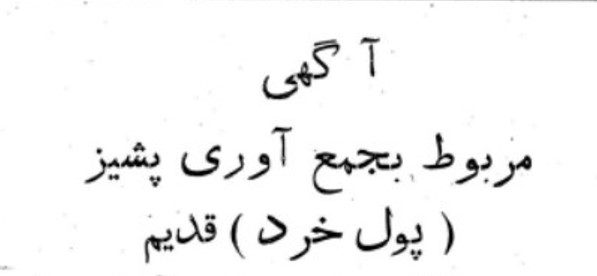 آگهی
مربوط بجمع آوری پشیز
( پول خرد ) قدیم